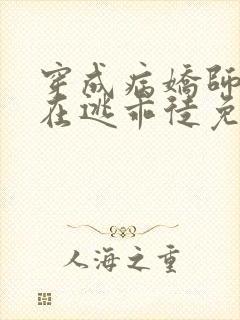 穿成病嬌師
在逃乖徒免
人海之重